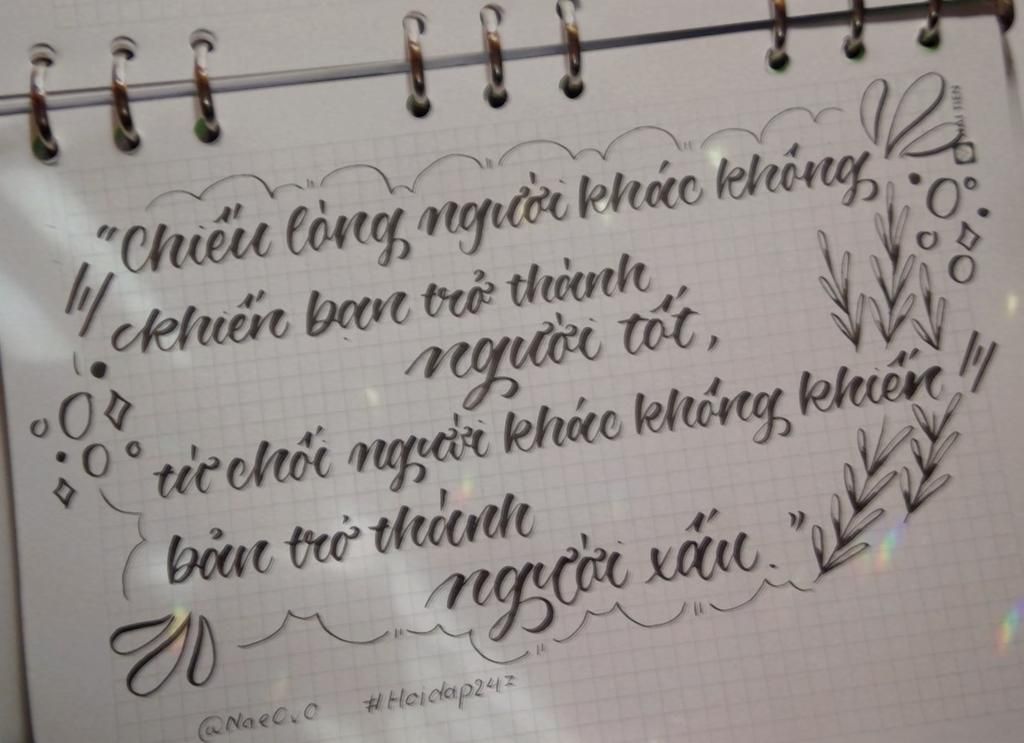 "Chiều lòng người khác không
khiến bạn trở thành
người tốt,
từ chối người khác không khiến
bản trở thành
người xấu."
@NaeO.O #Hoidap247